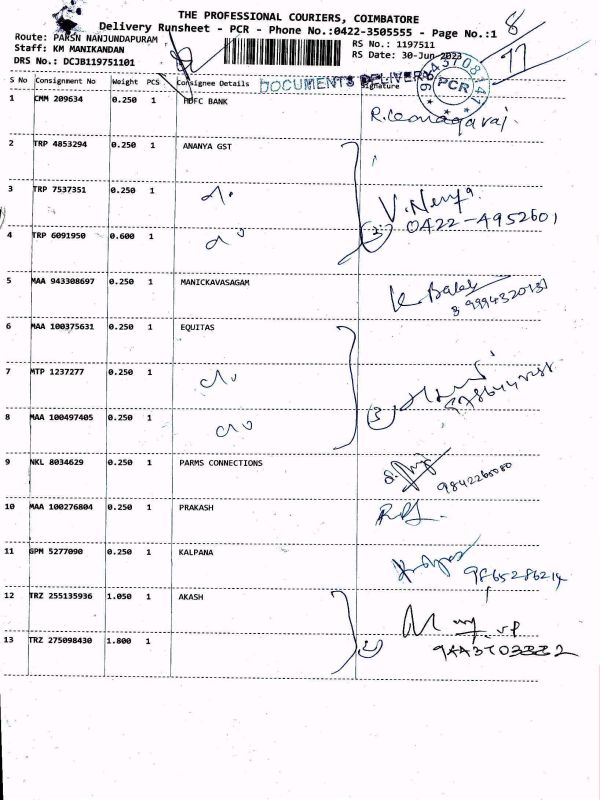 THE PROFESSIONAL COURIERS, COIMBATORE
Delivery Runsheet - PCR - Phone No.:0422-3505555 - Page No.:1
Route: PARSN NANJUNDAPURAM
Staff: KM MANIKANDAN
DRS No.: DCJB119751101
RS No.: 1197511
RS Date: 30-Jun 2023
8
77
DOCUMENTS DELIVER
PCR
S No Consignment No Weight PCS Consignee Details Signature
1 CMM 209634 0.250 1 HDFC BANK
2 TRP 4853294 0.250 1 ANANYA GST
3 TRP 7537351 0.250 1
V.
4 TRP 6091950 0.600 1 2 0422-4952601
5 MAA 943308697 0.250 1 MANICKAVASAGAM
6 MAA 100375631 0.250 1 EQUITAS
7 MTP 1237277 0.250 1
8 MAA 100497405 0.250 1 3
9 NKL 8034629 0.250 1 PARMS CONNECTIONS
10 MAA 100276804 0.250 1 PRAKASH
11 GPM 5277090 0.250 1 KALPANA
9865286214
12 TRZ 255135936 1.050 1 AKASH
13 TRZ 275098430 1.800 1